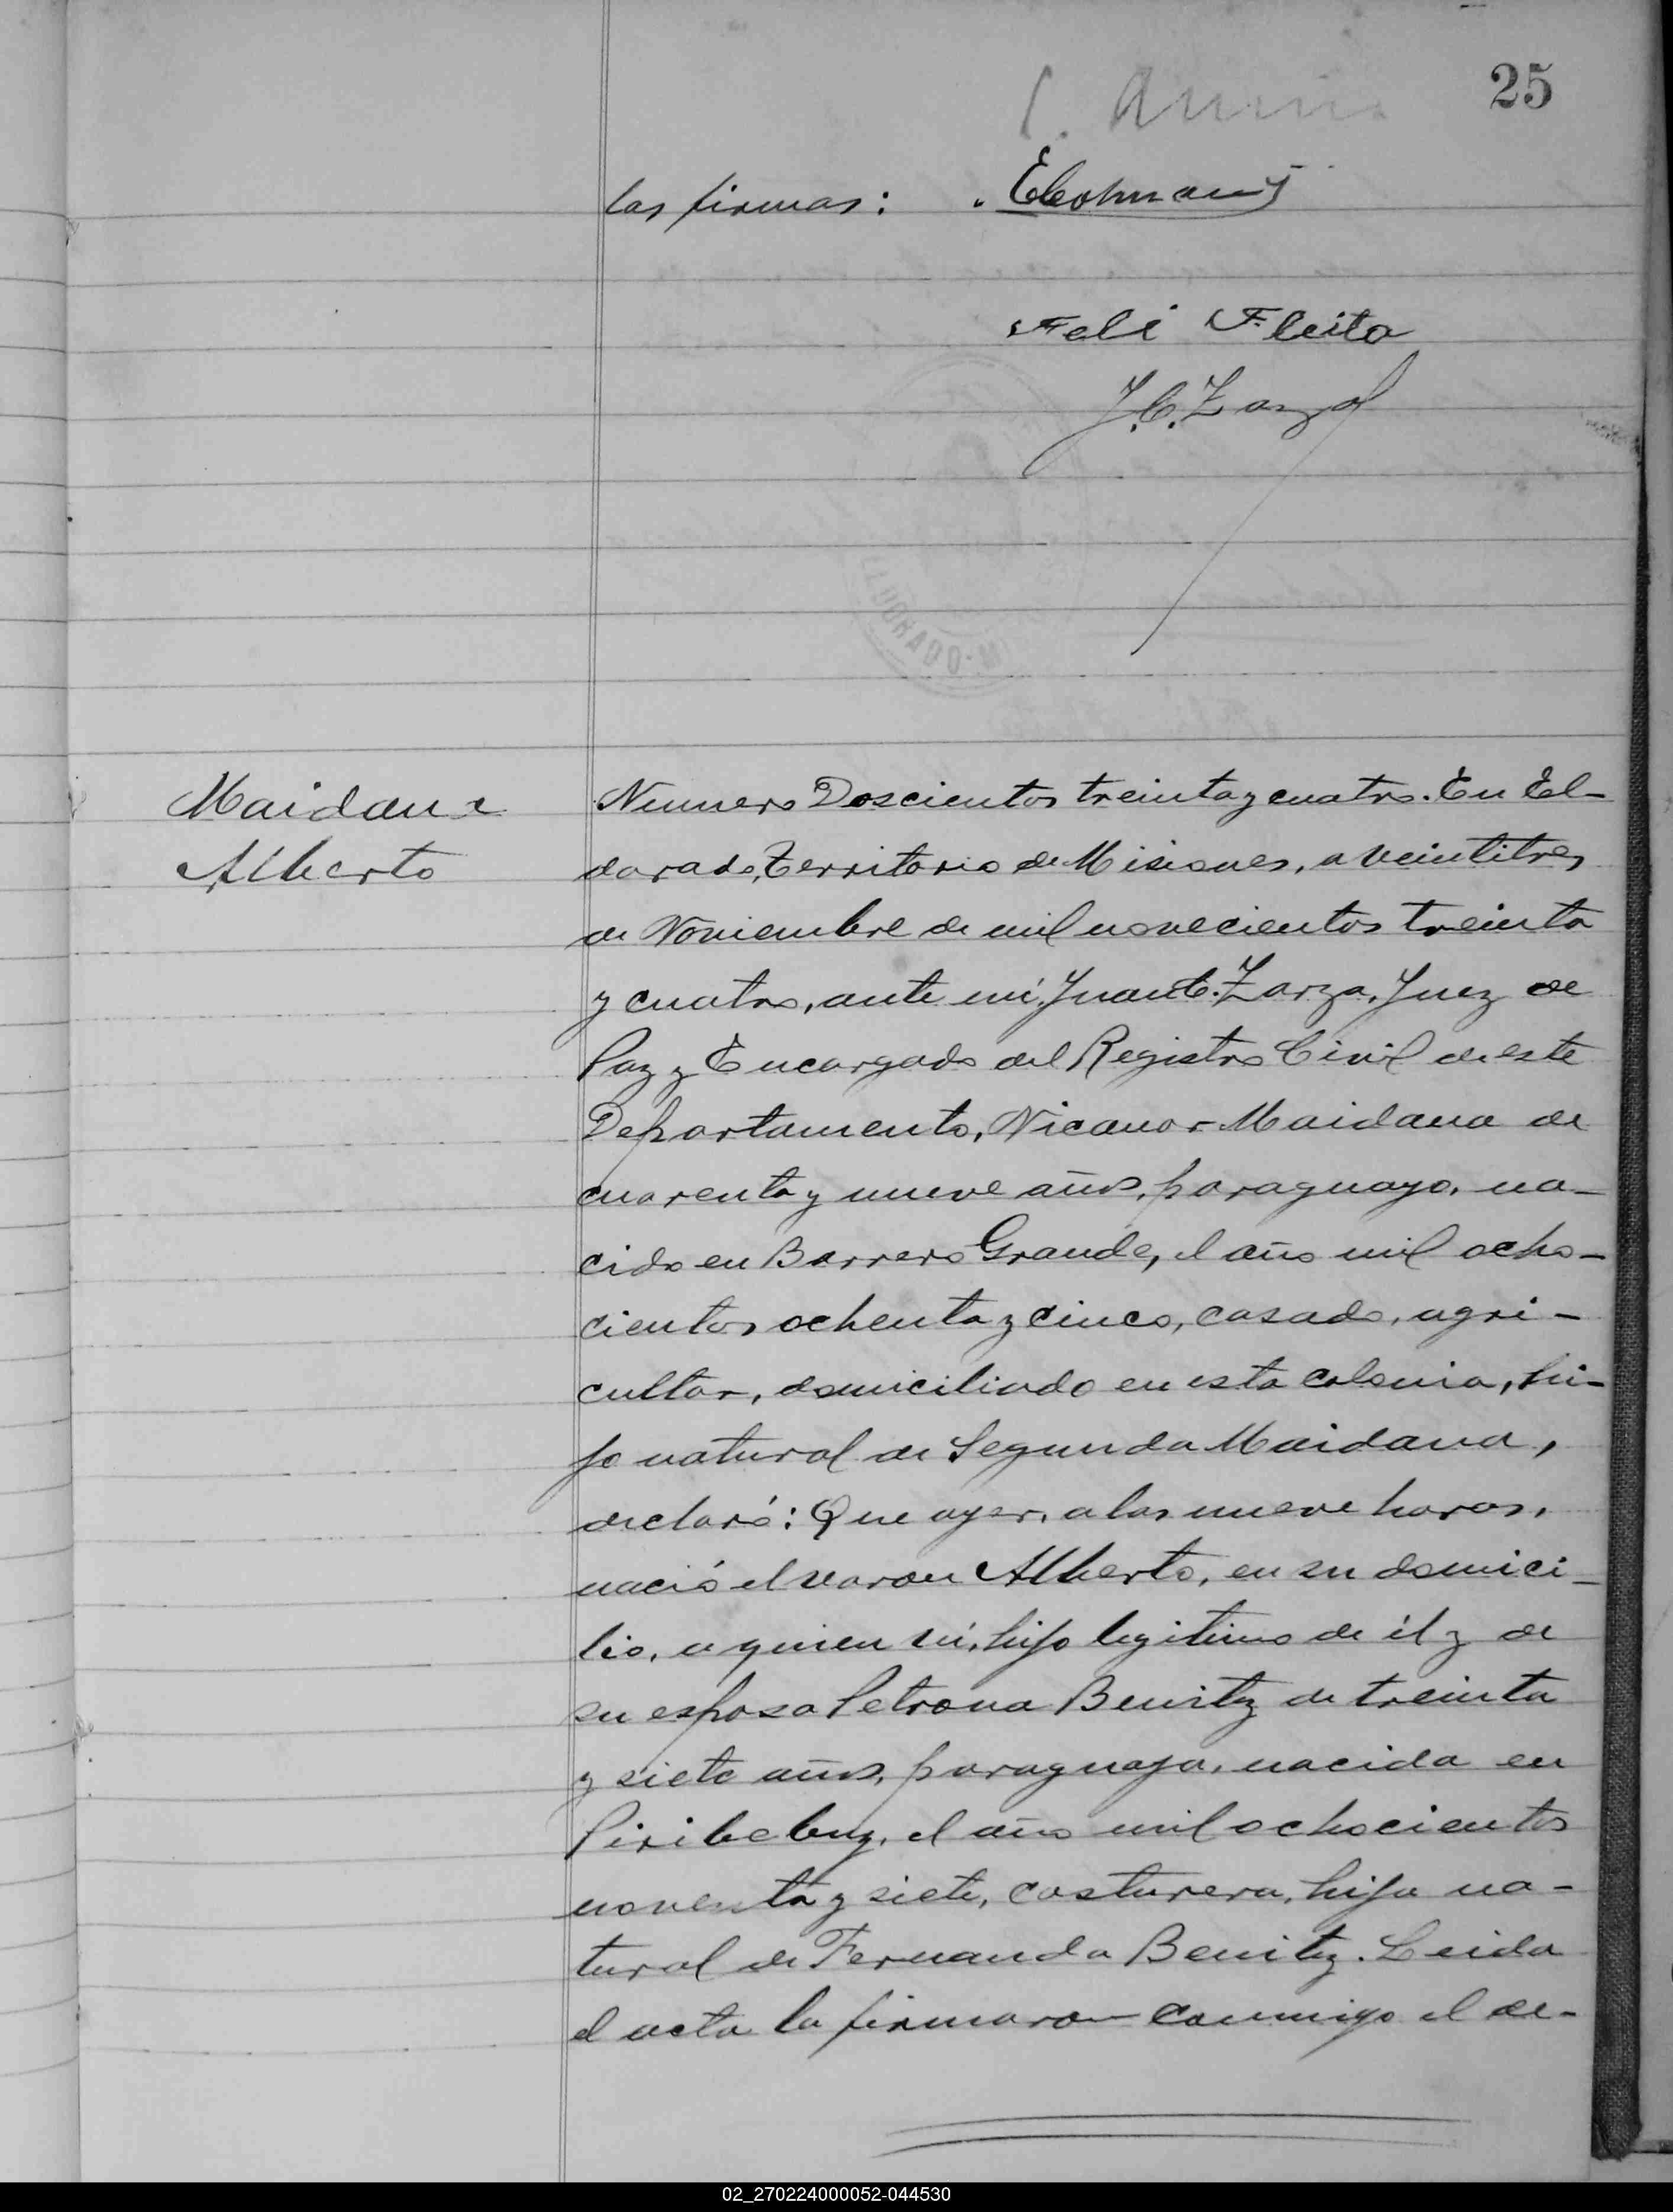 25
las firmas:
Feli Fleita
J.C. Zarza
Maidana
Alberto
Numero Doscientos treinta y cuatro. En El-
dorado, Territorio de Misiones, a veintitres
de Noviembre de mil novecientos treinta
y cuatro, ante mí, Juan C. Zarza, Juez de
Paz y Encargado del Registro Civil de este
Departamento, Nicanor Maidana de
cuarenta y nueve años, paraguayo, na-
cido en Barrero Grande, el año mil ocho-
cientos ochenta y cinco, casado, agri-
cultor, domiciliado en esta colonia, hi-
jo natural de Segunda Maidana,
declaró: Que ayer, a las nueve horas,
nació el varon Alberto, en su domici-
lio, a quien ví, hijo legitimo de él y de
su esposa Petrona Benitez de treinta
y siete años, paraguaya, nacida en
Piribebuy, el año mil ochocientos
noventa y siete, costurera, hija na-
tural de Fernanda Benitez. Leida
el acta la firmaron conmigo el de-
02_270224000052-044530